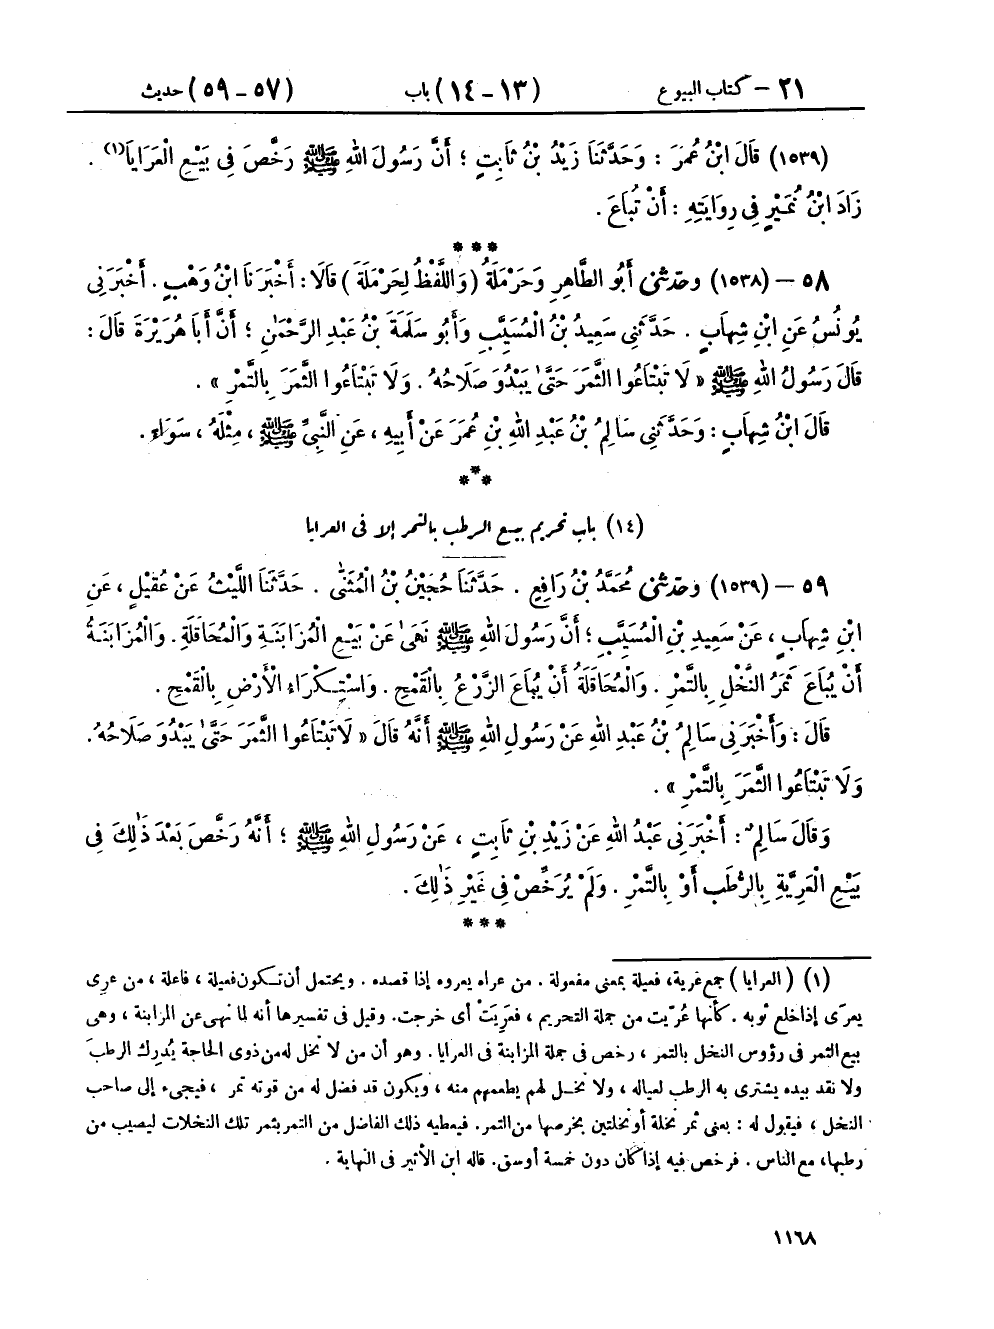 ٢١ – كتاب البيوع (١٣ – ١٤) باب (٥٧ – ٥٩) حديث
(١٥٣٩) قَالَ ابْنُ عُمَرَ : وَحَدَّثَنَا زَيْدُ بْنُ ثَابِتٍ ؛ أَنَّ رَسُولَ اللهِ ﷺ رَخَّصَ فِي بَيْعِ الْعَرَايَا(١) .
زَادَ ابْنُ نُمَيْرٍ فِي رِوَايَتِهِ : أَنْ تُبَاعَ .
***
٥٨ – (١٥٣٨) وحدثني أَبُو الطَّاهِرِ وَحَرْمَلَةُ (وَاللَّفْظُ لِحَرْمَلَةَ) قَالَا : أَخْبَرَنَا ابْنُ وَهْبٍ . أَخْبَرَنِي
يُونُسُ عَنِ ابْنِ شِهَابٍ . حَدَّثَنِي سَعِيدُ بْنُ الْمُسَيَّبِ وَأَبُو سَلَمَةَ بْنُ عَبْدِ الرَّحْمَٰنِ ؛ أَنَّ أَبَا هُرَيْرَةَ قَالَ :
قَالَ رَسُولُ اللهِ ﷺ « لَا تَبْتَاعُوا الثَّمَرَ حَتَّىٰ يَبْدُوَ صَلَاحُهُ . وَلَا تَبْتَاعُوا الثَّمَرَ بِالتَّمْرِ » .
قَالَ ابْنُ شِهَابٍ : وَحَدَّثَنِي سَالِمُ بْنُ عَبْدِ اللهِ بْنِ عُمَرَ عَنْ أَبِيهِ ، عَنِ النَّبِيِّ ﷺ ، مِثْلَهُ ، سَوَاءً .
***
(١٤) باب تحريم بيع الرطب بالتمر إلا في العرايا
٥٩ – (١٥٣٩) وحدثني مُحَمَّدُ بْنُ رَافِعٍ . حَدَّثَنَا حُجَيْنُ بْنُ الْمُثَنَّىٰ . حَدَّثَنَا اللَّيْثُ عَنْ عُقَيْلٍ ، عَنِ
ابْنِ شِهَابٍ ، عَنْ سَعِيدِ بْنِ الْمُسَيَّبِ ؛ أَنَّ رَسُولَ اللهِ ﷺ نَهَىٰ عَنْ بَيْعِ الْمُزَابَنَةِ وَالْمُحَاقَلَةِ . وَالْمُزَابَنَةُ
أَنْ يُبَاعَ ثَمَرُ النَّخْلِ بِالتَّمْرِ . وَالْمُحَاقَلَةُ أَنْ يُبَاعَ الزَّرْعُ بِالْقَمْحِ . وَاسْتِكْرَاءُ الْأَرْضِ بِالْقَمْحِ .
قَالَ : وَأَخْبَرَنِي سَالِمُ بْنُ عَبْدِ اللهِ عَنْ رَسُولِ اللهِ ﷺ أَنَّهُ قَالَ « لَا تَبْتَاعُوا الثَّمَرَ حَتَّىٰ يَبْدُوَ صَلَاحُهُ .
وَلَا تَبْتَاعُوا الثَّمَرَ بِالتَّمْرِ » .
وَقَالَ سَالِمٌ : أَخْبَرَنِي عَبْدُ اللهِ عَنْ زَيْدِ بْنِ ثَابِتٍ ، عَنْ رَسُولِ اللهِ ﷺ ؛ أَنَّهُ رَخَّصَ بَعْدَ ذَٰلِكَ فِي
بَيْعِ الْعَرِيَّةِ بِالرُّطَبِ أَوْ بِالتَّمْرِ . وَلَمْ يُرَخِّصْ فِي غَيْرِ ذَٰلِكَ .
***
(١) (العرايا) جمع عرية ، فعيلة بمعنى مفعولة . من عراه يعروه إذا قصده . ويحتمل أن تكون فعيلة ، فاعلة ، من عرِى
يعرَى إذا خلع ثوبه . كأنها عُرِّيت من جملة التحريم ، فعَرِيَتْ أي خرجت . وقيل في تفسيرها أنه لما نهى عن المزابنة ، وهى
بيع الثمر في رؤوس النخل بالتمر ، رخص في جملة المزابنة في العرايا . وهو أن من لا نخل له من ذوى الحاجة يُدرك الرطبَ
ولا نقد بيده يشترى به الرطب لعياله ، ولا نخل لهم يطعمهم منه ، ويكون قد فضل له من قوته تمر ، فيجىء إلى صاحب
النخل ، فيقول له : بعنى ثمر نخلة أو نخلتين بخرصها من التمر . فيعطيه ذلك الفاضل من التمر بثمر تلك النخلات ليصيب من
رطبها ، مع الناس . فرخص فيه إذا كان دون خمسة أوسق . قاله ابن الأثير في النهاية .
١١٦٨